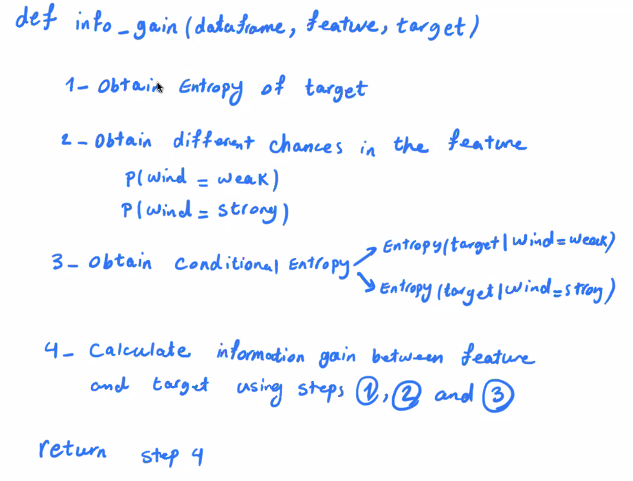 def info_gain(dataframe, feature, target)
1- Obtain Entropy of target
2- Obtain different chances in the feature
P(wind = weak)
P(wind = strong)
3- Obtain Conditional Entropy
Entropy(target|wind=weak)
Entropy(target|wind=strog)
4- Calculate information gain between feature
and target using steps 1, 2 and 3
return step 4